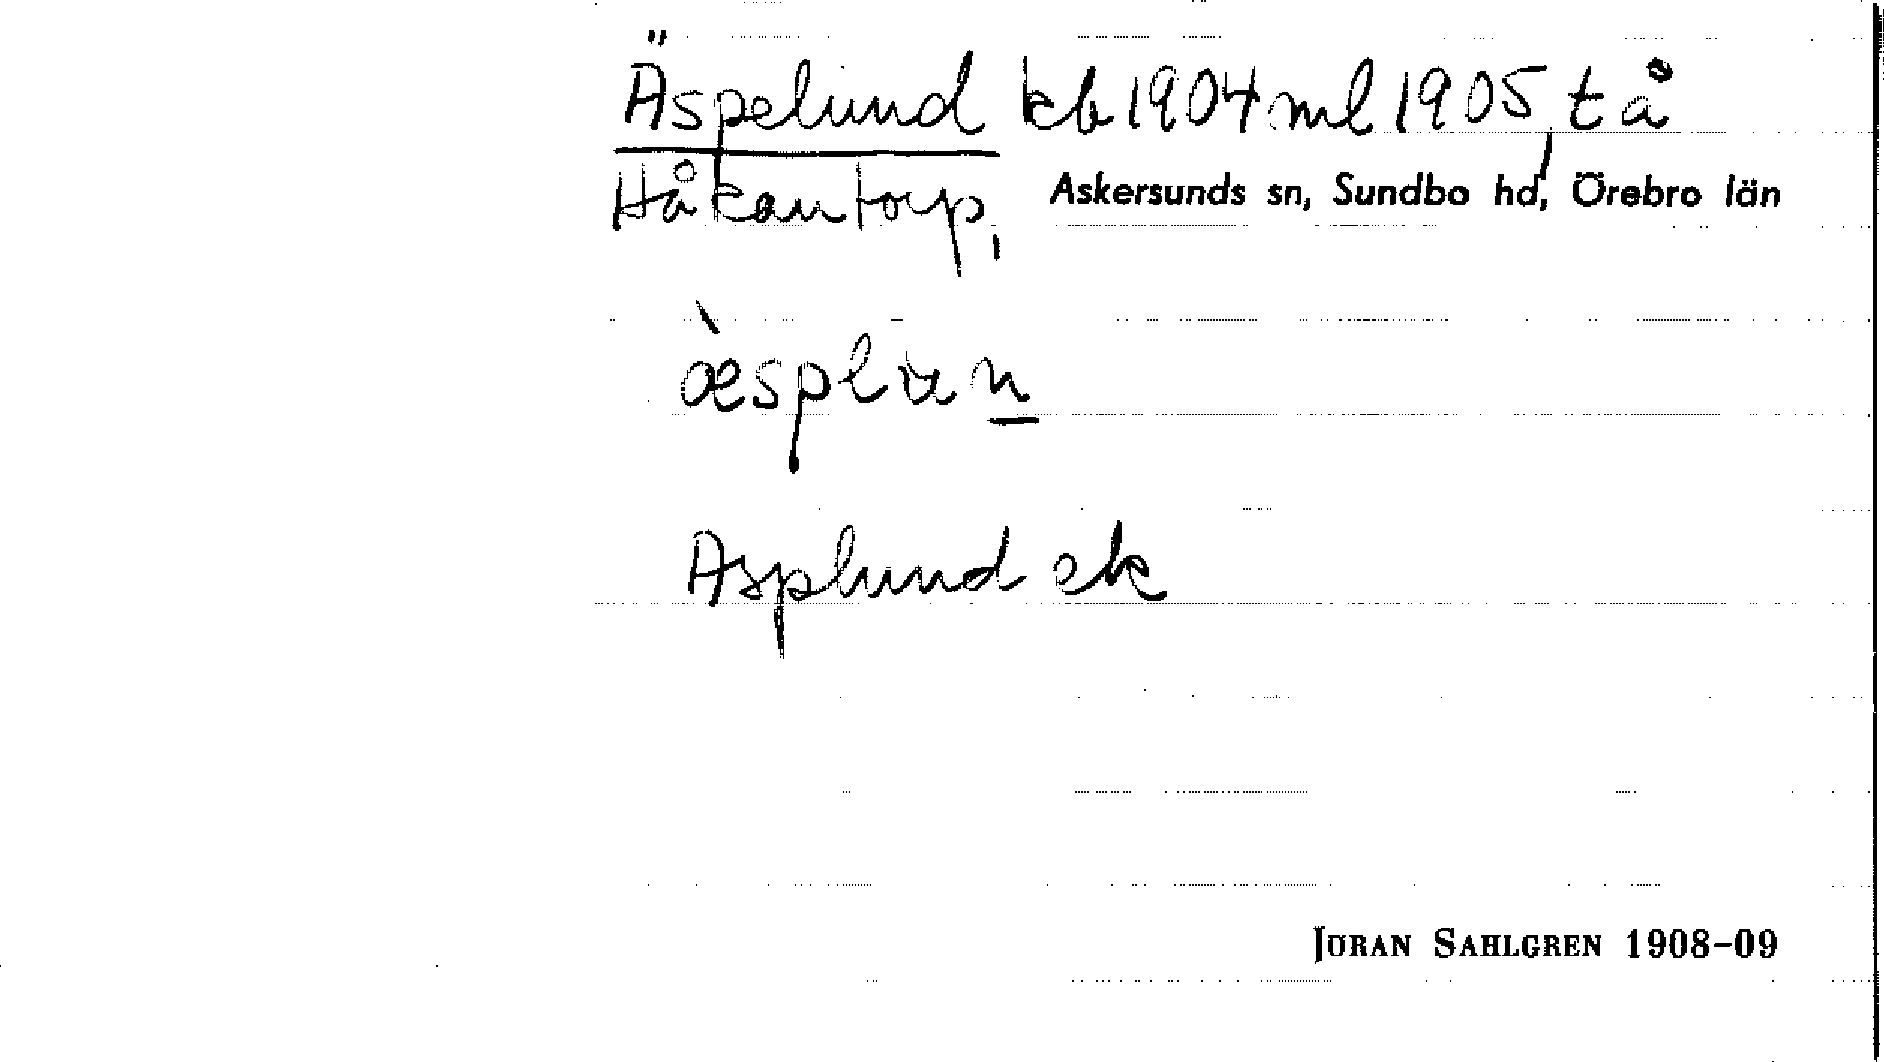 Äspelund kb 1904 ml 1905, t å
Håkantorp, Askersunds sn, Sundbo hd, Örebro län
æ̀splun̲
Asplund ek
JÖRAN SAHLGREN 1908-09